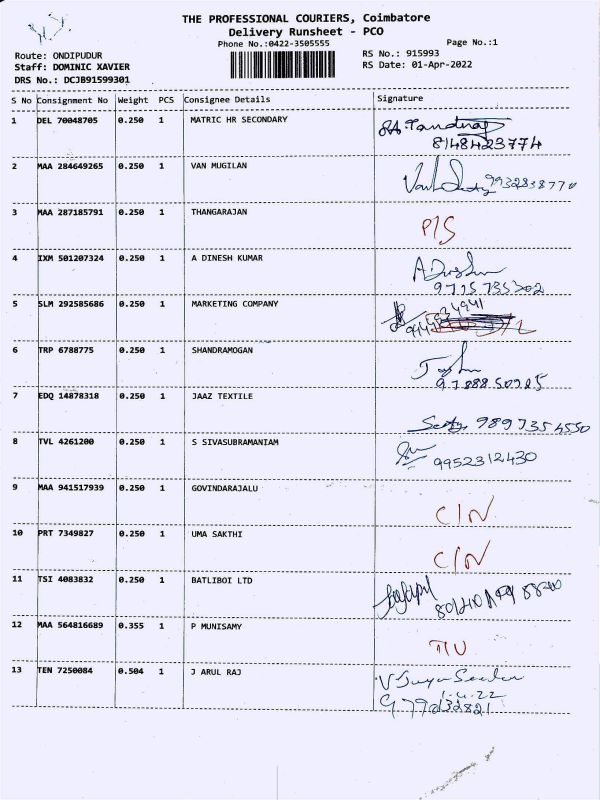 THE PROFESSIONAL COURIERS, Coimbatore
Delivery Runsheet - PCO
Phone No.:0422-3505555
Page No.:1
Route: ONDIPUDUR
Staff: DOMINIC XAVIER
DRS No.: DCJB91599301
RS No.: 915993
RS Date: 01-Apr-2022
S No Consignment No Weight PCS Consignee Details Signature
1 DEL 70048705 0.250 1 MATRIC HR SECONDARY
8148423774
2 MAA 284649265 0.250 1 VAN MUGILAN 9932838770
3 MAA 287185791 0.250 1 THANGARAJAN P/S
4 IXM 501207324 0.250 1 A DINESH KUMAR
9715735302
5 SLM 292585686 0.250 1 MARKETING COMPANY
6 TRP 6788775 0.250 1 SHANDRAMOGAN
7 EDQ 14878318 0.250 1 JAAZ TEXTILE
9897354550
8 TVL 4261200 0.250 1 S SIVASUBRAMANIAM
9952312430
9 MAA 941517939 0.250 1 GOVINDARAJALU C/N
10 PRT 7349827 0.250 1 UMA SAKTHI C/N
11 TSI 4083832 0.250 1 BATLIBOI LTD
12 MAA 564816689 0.355 1 P MUNISAMY
13 TEN 7250084 0.504 1 J ARUL RAJ
1.4.22